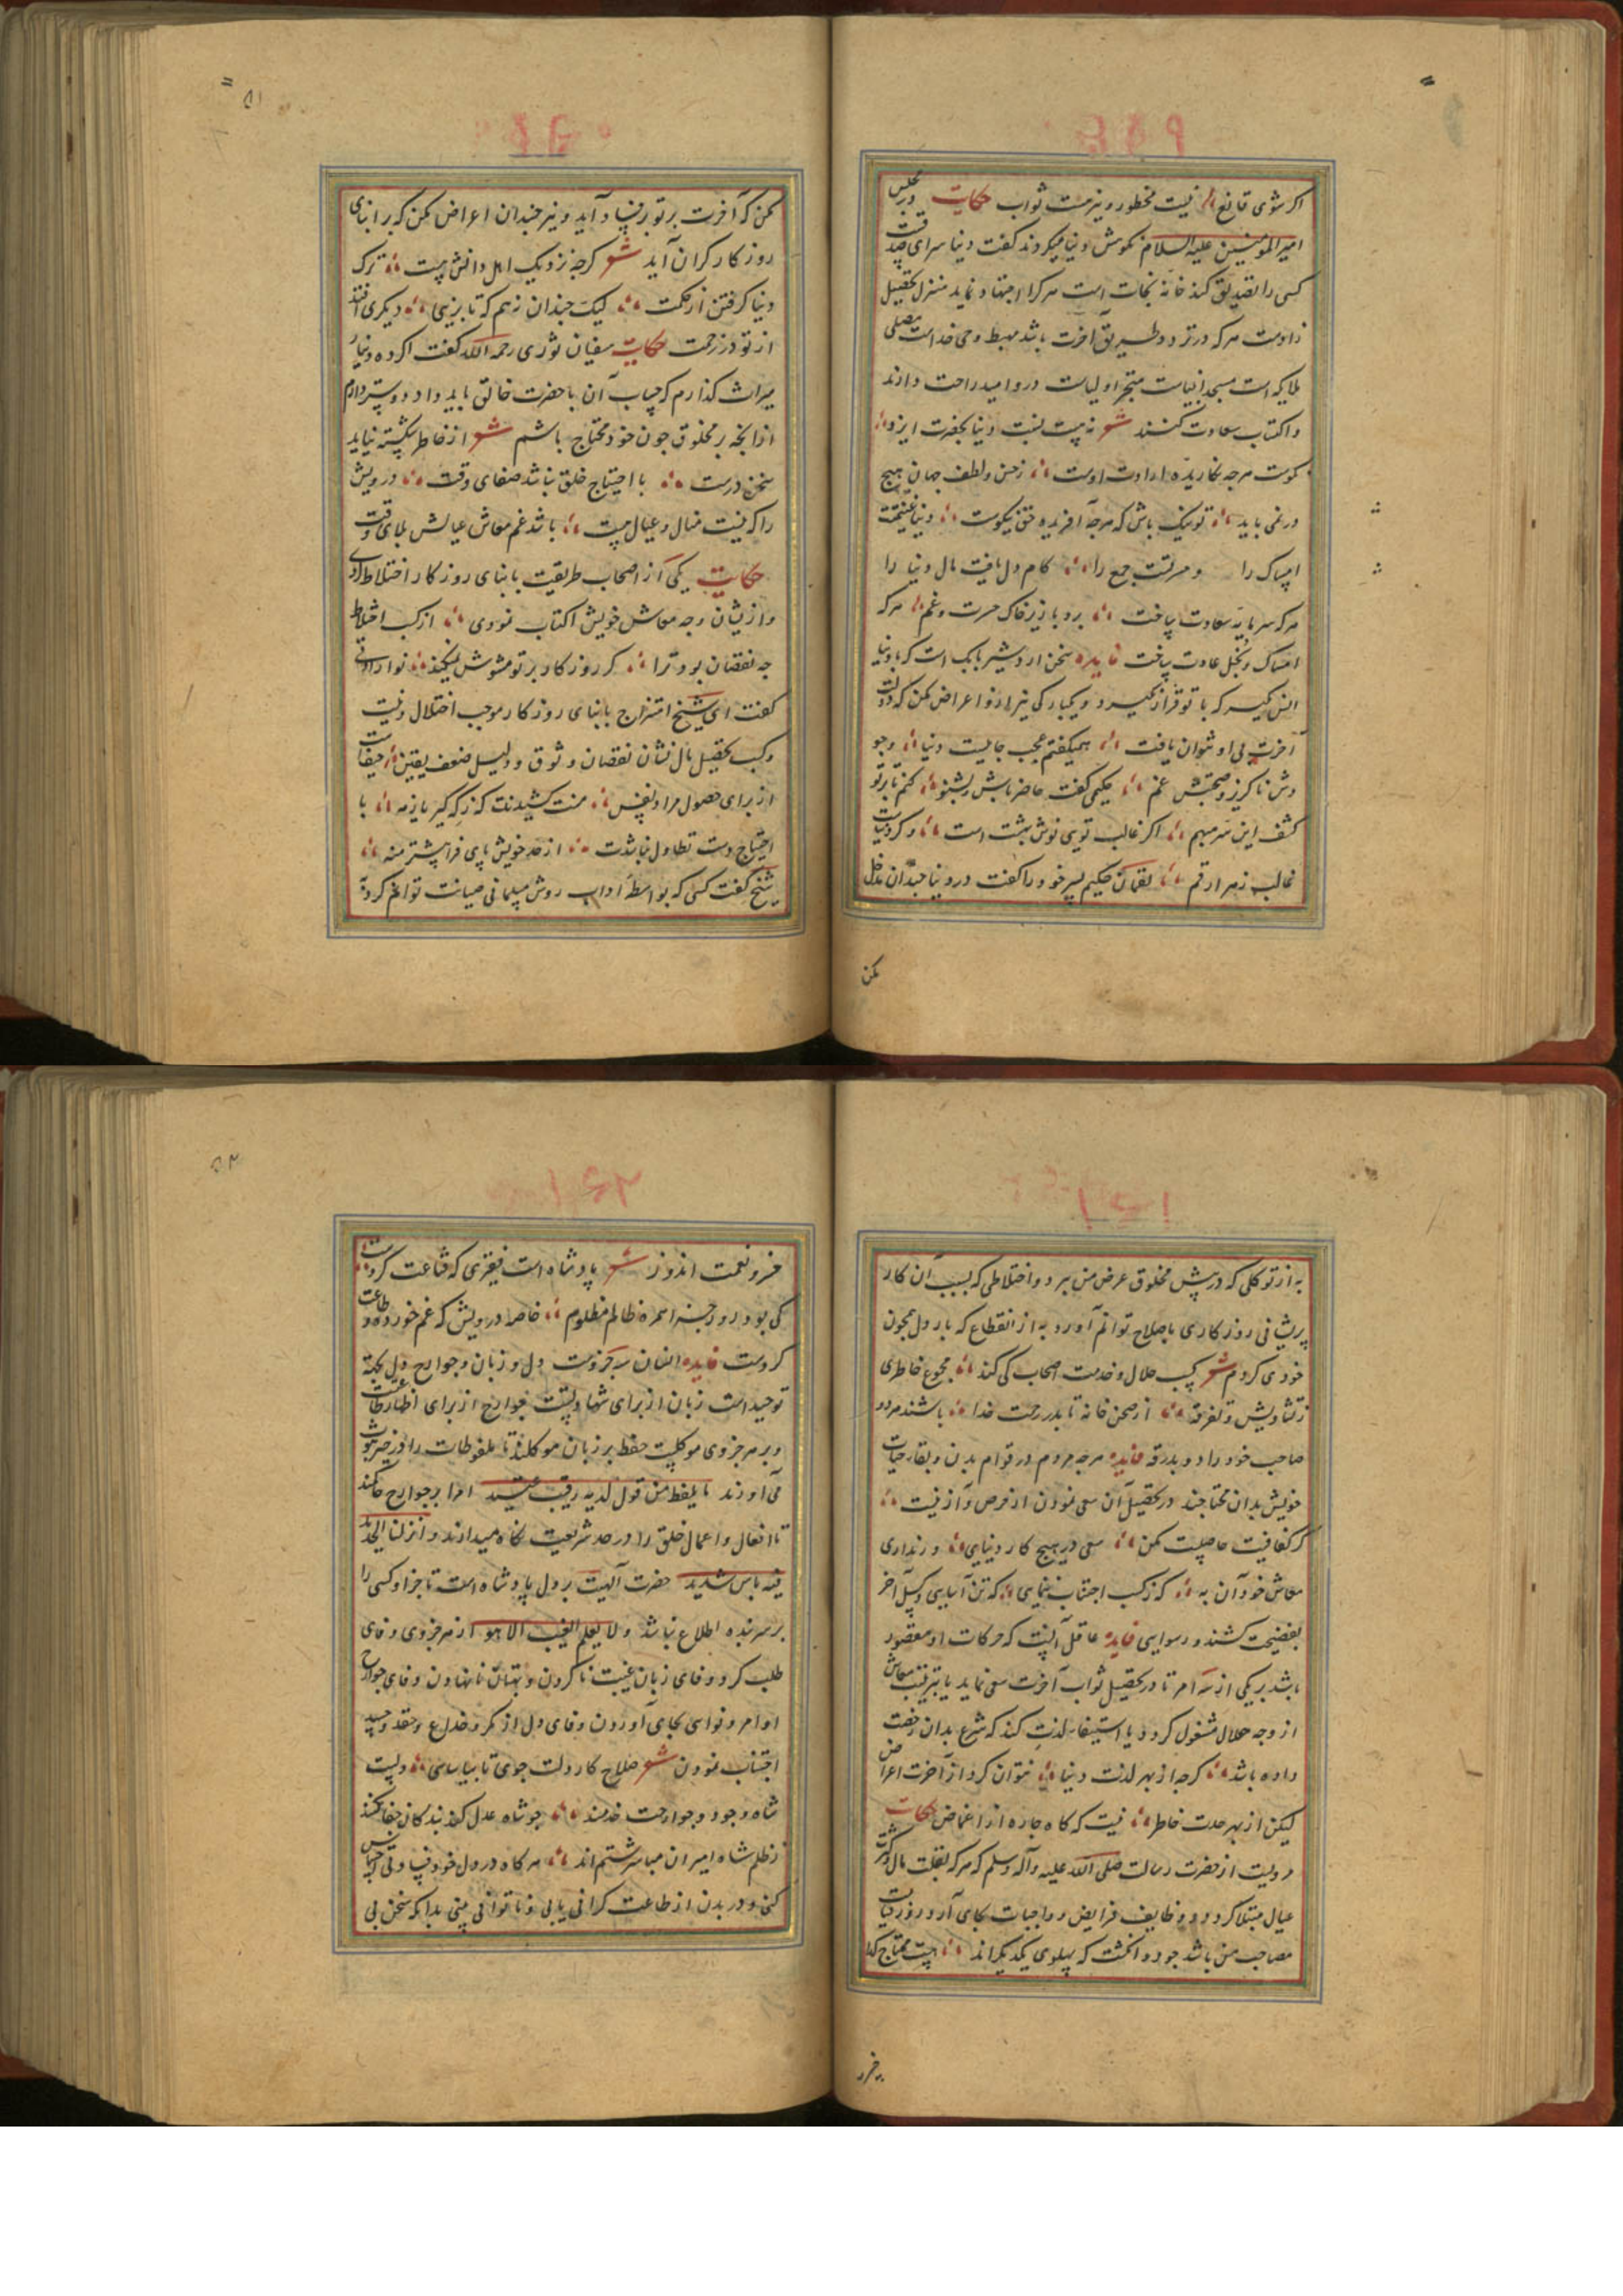 اگر شوی قانع نیست محظور و نیز هست ثواب حکایت در مجلس
امیرالمومنین علیه السلام نکوهش دنیا میکردند گفت دنیا سرای صدقست
کسی را که تصدیق کند خانه نجات است هر که را اجتهاد نماید منزل تحصیل
زادست هر که در تردد طریق آخرت باشد مهبط وحی خداست مصلی
ملایکه است مسجد انبیاست متجر اولیاست درو امید راحت دارند
و اکتساب سعادت کنند شعر نه پست نسبت دنیا بحضرت ایزد
کوست هرچه نگاریده ارادت اوست ز حسن و لطف جهان هیچ
در نمی باید تو نیک باش که هرچه آفریده حق نیکوست دنیا غنیمتست
امساک را و مرتبت جمع را کام دل یافت مال دنیا را
هر که سرمایه سعادت ساخت برد با زیر خاک حسرت و غم هر که
امساک و بخل عادت ساخت فایده سخن اردشیر بابک است که با دنیا
انس مگیر که با تو قرار نگیرد و یکبارگی نیز ازو اعراض مکن که دولت
آخرت بی او نتوان یافت همیگفتم عجب جاییست دنیا وجو
دش ناگریز و صحبتش غم حکیمی گفت حاضر باش و بشنو کنم تا بر تو
کشف این سر مبهم اگر غالب تویی نوش بهشت است و گر دنیاست
غالب زهر ارقم لقمان حکیم پسر خود را گفت در دنیا چندان مداخل
مکن
۵۱
مکن که آخرت بر تو بفساد آید و نیز چندان اعراض مکن که بر ابنای
روزگار گران آید شعر گرچه نزدیک اهل دانش هست ترک
دنیا گرفتن از حکمت لیک چندان نه هم که تا بزیی دیگری افتد
از تو در زحمت حکایت سفیان ثوری رحمه الله گفت اگر ده دینار
میراث گذارم که حساب آن با حضرت خالق باید داد دوستر دارم
از آنچه بر مخلوق چون خود محتاج باشم شعر از خاطر شکسته نیاید
سخن درست با احتیاج خلق نباشد صفای وقت درویش
را که نیست منال و عیال هست باشد غم معاش عیالش بلای وقت
حکایت یکی از اصحاب طریقت با بنای روزگار اختلاط کردی
و ازیشان وجه معاش خویش اکتساب نمودی از کسب اختلاط
چه نقصان بود ترا گر روزگار بر تو مشوش نمیکند
گفت ای شیخ امتزاج با بنای روزگار موجب اختلال دنیست
و کسب تحصیل مال نشان نقصان وثوق و دلیل ضعف یقین حیفست
از برای حصول مراد نفس منت کشیدنت که ز که گیر یا زمه با
احتیاج دست تطاول نباشدت از حد خویش پای فراپیشتر منه
شیخ گفت کسی که بواسطه آداب روش مسلمانی صیانت توانم کرد
به از توکلی که در پیش مخلوق عرض من ببرد و اختلاطی که بسبب آن کار
پریشانی روزگاری باصلاح توانم آورد به از انقطاع که بار دل همچون
خودی کردم شعر کسب حلال و خدمت اصحاب کی کند مجموع خاطری
ز تشاویش و تفرقه از صحن خانه تا بدر رحمت خدا باشند هر دو
صاحب خود را دو بدرقه فایده هرچه مردم در قوام بدن و بقاء حیات
خویش بدان محتاجند در تحصیل آن سعی نمودن از حرص و آز نیست
گر کفافیت حاصلست مکن سعی در هیچ کار دنیایی ور نداری
معاش خود آن به که ز کسب اجتناب ننمایی که تن آسایی و کسل آخر
بفضیحت کشند و رسوایی فایده عاقل آنست که حرکات او مقصور
باشد بر یکی از سه امر تا در تحصیل ثواب آخرت سعی نماید یا بترتیب معاش
از وجه حلال مشغول گردد یا استیفاء لذت کند که شرع بدان رخصت
داده باشد گرچه از بهر لذت دنیا نتوان کرد از آخرت اعراض
لیکن از بهر حدت خاطر نیست که گاه چاره از اغماض حکایت
مرویست از حضرت رسالت صلی الله علیه وآله وسلم که هر که بقلت مال و کثرت
عیال مبتلا گردد و وظایف فرایض و واجبات بجای آرد روز قیامت
مصاحب من باشد چو دو انگشت که پهلوی یکدیگراند هست محتاج گدا
۵۲
خرد نعمت اندوز شعر پادشاه است فقیری که قناعت کردست
کی بود روز جزا همره ظالم مظلوم خاصه درویش که غم خورده و طاعت
کردست فایده انسان سه جزوست دل و زبان و جوارح دل بجهة
توحید است زبان از برای شهادتست جوارح از برای اظهار طاعت
و بر هر جزوی موکلیست حفظ بر زبان موکلند تا ملفوظات را در حیز ثبوت
می آورند ما یلفظ من قول الا لدیه رقیب عتید امرا بر جوارح حاکمند
تا افعال و اعمال خلق را در حد شریعت نگاه میدارند و انزلنا الحدید
فیه باس شدید حضرت الهیت بر دل پادشاه است تا جز او کسی را
بر سر بنده اطلاع نباشد و لا یعلم الغیب الا هو از هر جزوی وفای
طلب کرد وفای زبان غیبت ناکردن و بهتان نانهادن وفای جوارح
اوامر و نواهی بجای آوردن وفای دل از مکر و خداع و حقد و حسد
اجتناب نمودن شعر صلاح کار دلت جوی تا بیاسایی دلست
شاه وجود و جوارحت خدمند چو شاه عدل کند بندگان جفا نکنند
ز ظلم شاه امیران مباشر ستم اند هر گاه در دل خود قساوتی احساس
کنی و در بدن از طاعت گرانی یابی و ناتوانی بینی بدانکه سخن بی